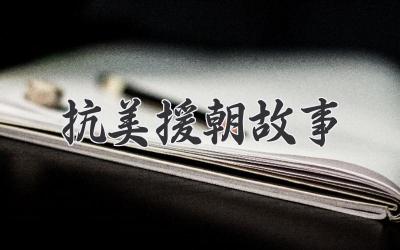 抗美援朝故事